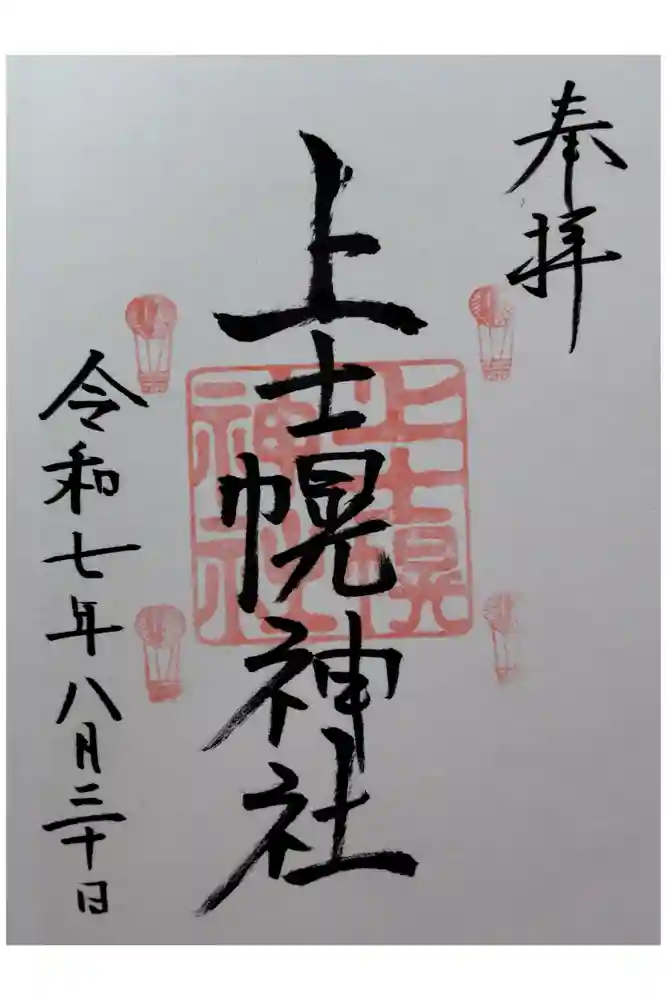 奉拝
上士幌神社
上士幌
神社
令和七年八月三十日